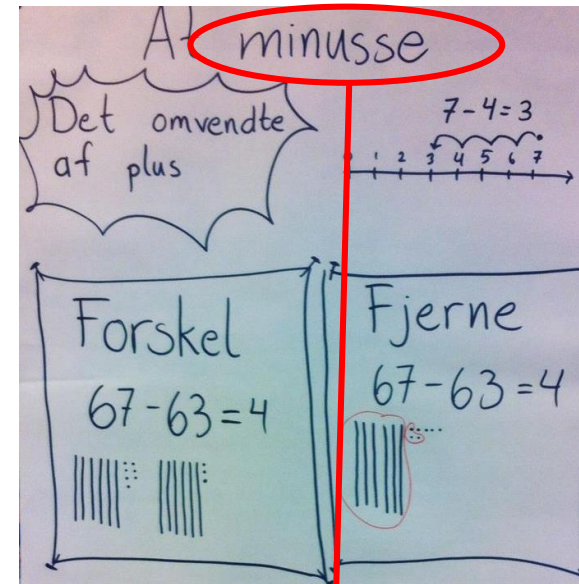 At minusse
Det omvendte
af plus
7-4=3
0 1 2 3 4 5 6 7
Forskel
67-63=4
Fjerne
67-63=4